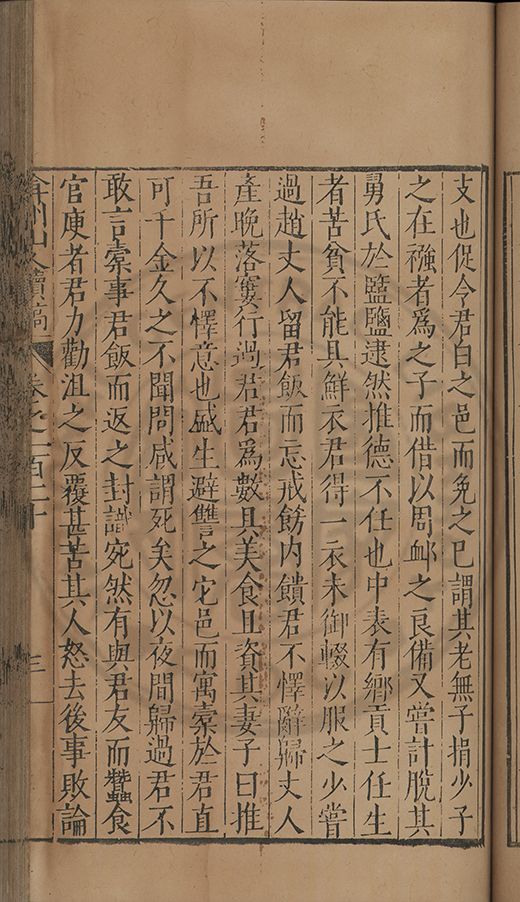 支也促令君白之邑而免之已謂其老無子捐少子
之在襁者爲之子而借以周䘏之良備又嘗計脫其
舅氏於鹽鹽逮然推德不任也中表有鄉貢士任生
者苦貧不能具鮮衣君得一衣未御輟以服之少嘗
過趙丈人留君飯而忘戒飭內饋君不懌辭歸丈人
產晚落寠行過君君爲數具美食且資其妻子曰推
吾所以不懌意也盛生避讐之它邑而寓橐於君直
可千金久之不聞問咸謂死矣忽以夜間歸過君不
敢言橐事君飯而返之封識宛然有與君友而蠶食
官庾者君力勸沮之反覆甚苦其人怒去後事敗論
弇州山人續稿 卷之一百二十 三